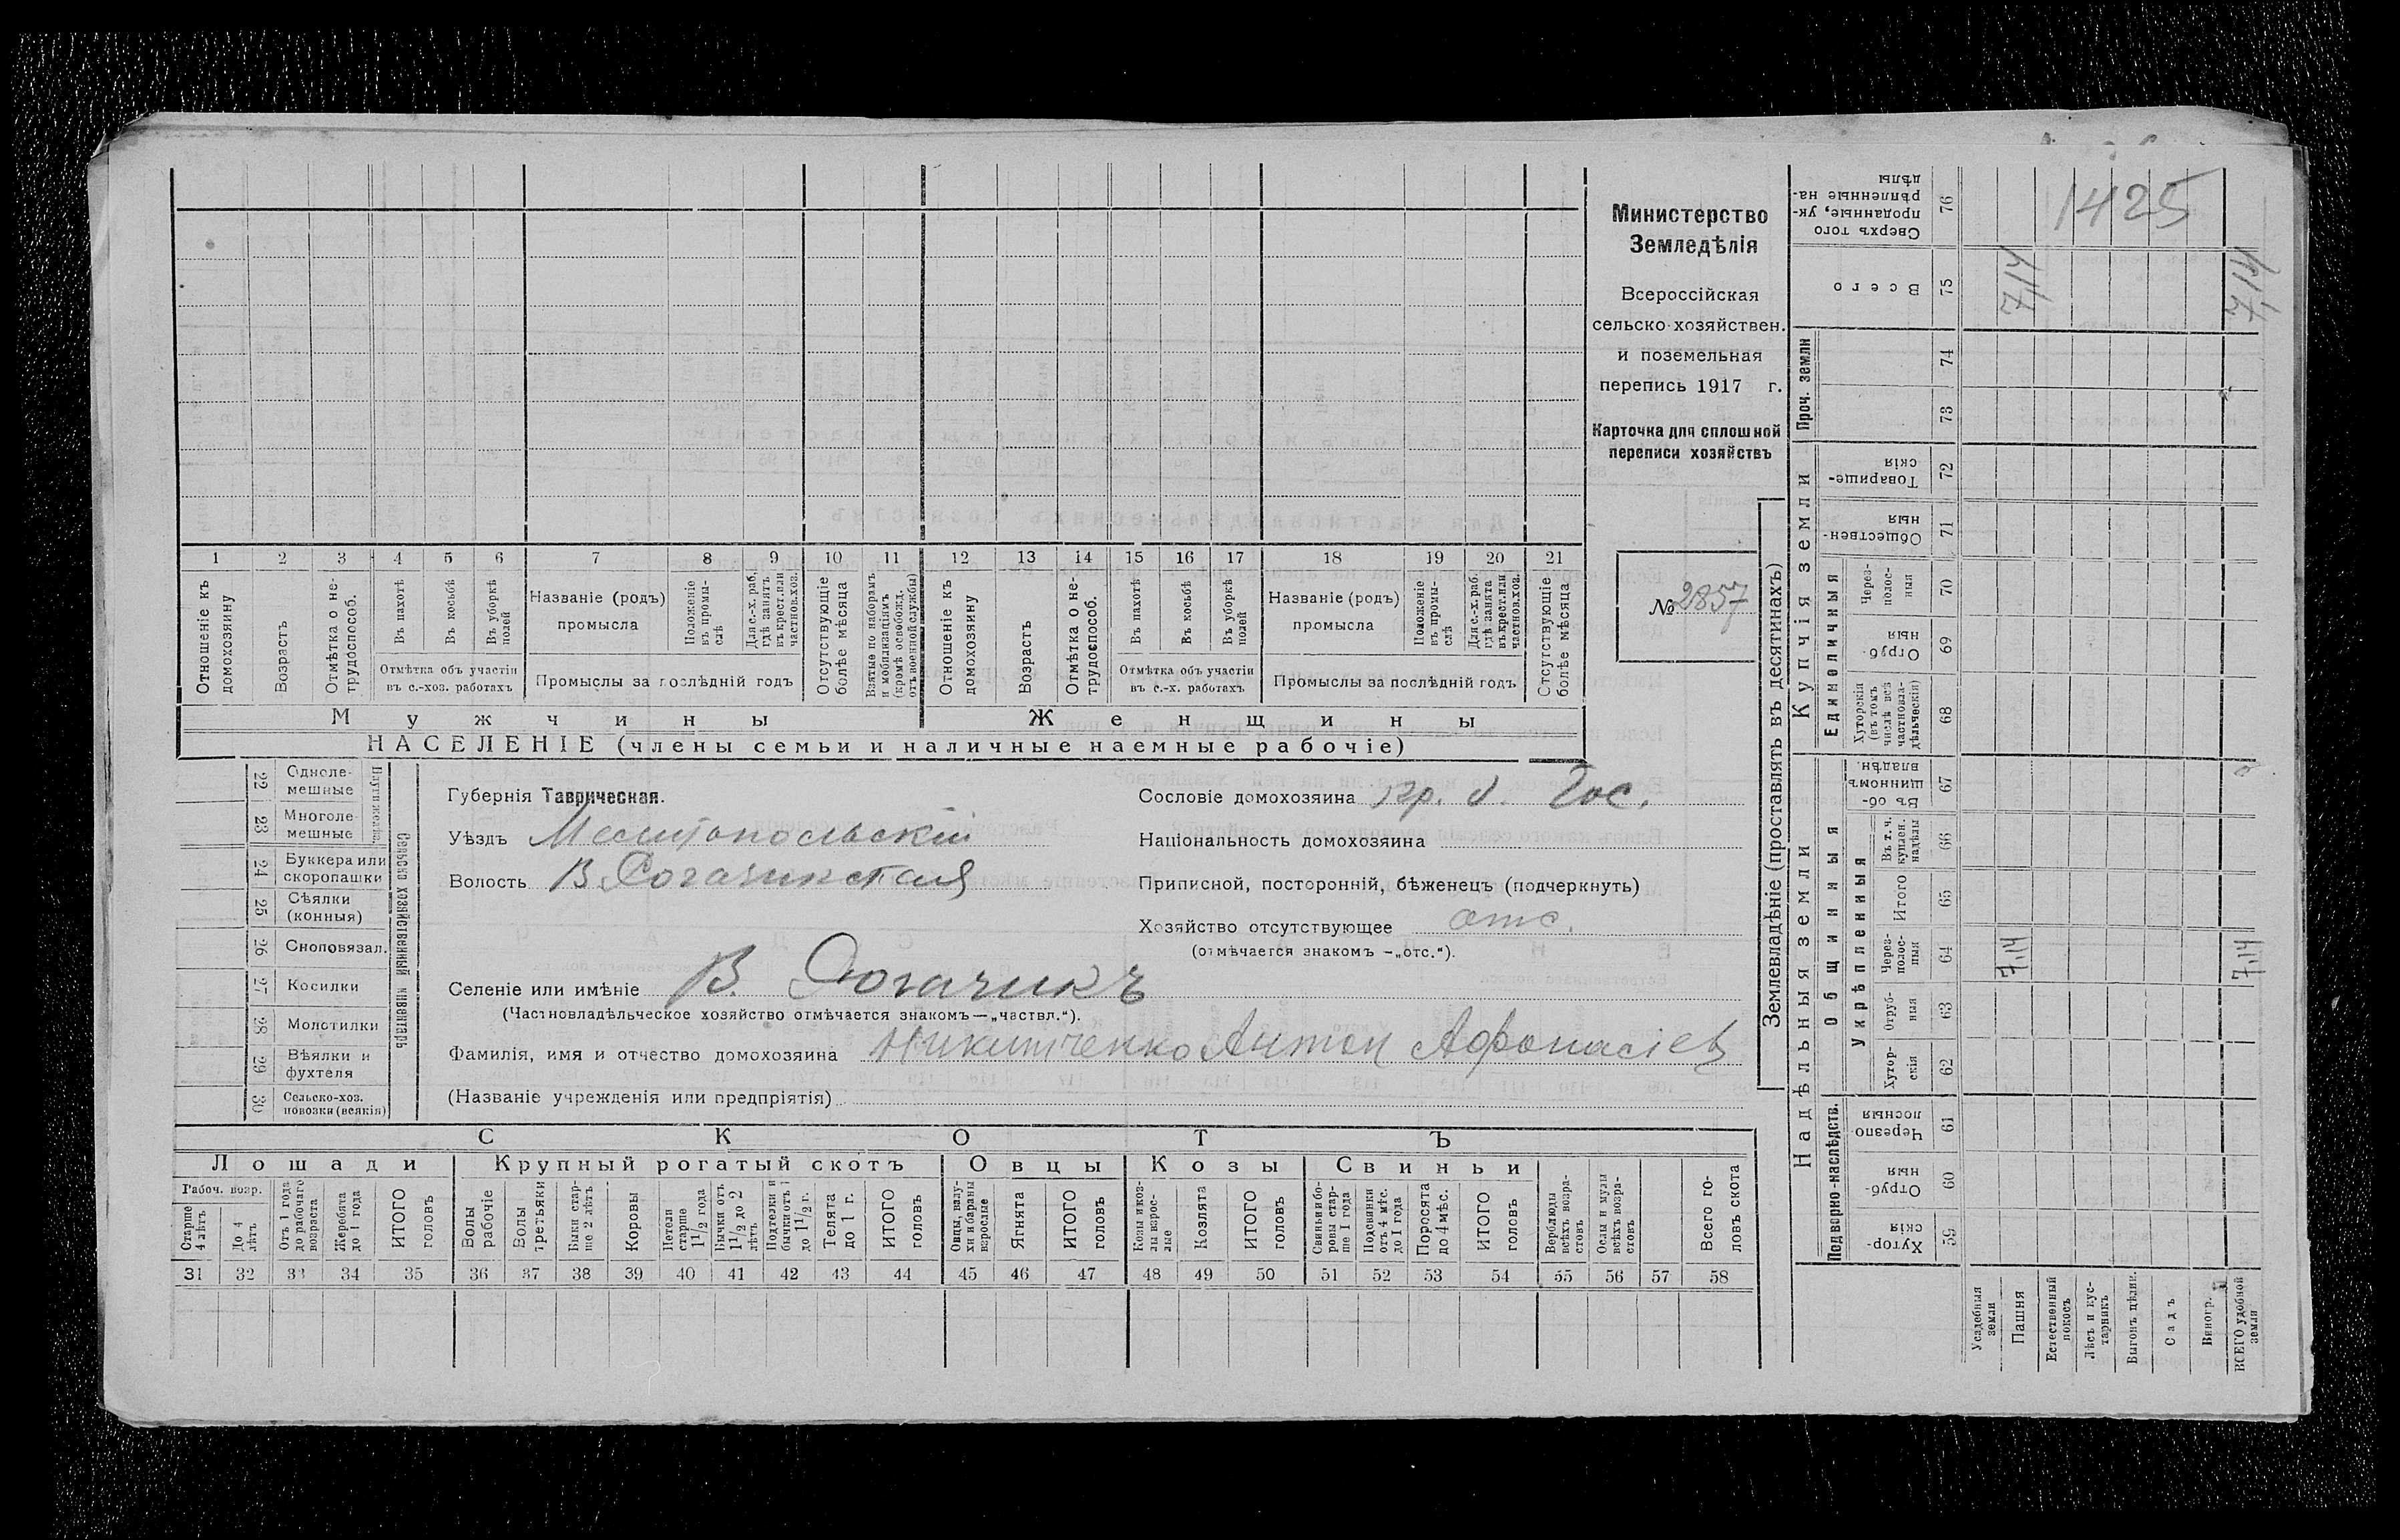 1 2 3 4 5 6 7 8 9 10 11 12 13 14 15 16 17 18 19 20 21
Отношеніе къ домохозяину
Возрастъ
Отмѣтка о не-трудоспособ.
Въ пахотѣ
Въ косьбѣ
Въ уборкѣ полей
Отмѣтка объ участіи въ с.-хоз. работахъ
Названіе (родъ) промысла
Положеніе въ промы-слѣ
Для с.-х. раб. гдѣ занятъ въ крест. или частнов. хоз.
Промыслы за послѣдній годъ
Отсутствующіе болѣе мѣсяца
Взятые по наборамъ и мобилизаціямъ (кромѣ освобожд. отъ военной службы)
Отношеніе къ домохозяину
Возрастъ
Отмѣтка о не-трудоспособ.
Въ пахотѣ
Въ косьбѣ
Въ уборкѣ полей
Отмѣтка объ участіи въ с.-х. работахъ
Названіе (родъ) промысла
Положеніе въ промы-слѣ
Для с.-х. раб. гдѣ занята въ крест. или частнов. хоз.
Промыслы за послѣдній годъ
Отсутствующіе болѣе мѣсяца
Мужчины
Женщины
НАСЕЛЕНІЕ (члены семьи и наличные наемные рабочіе)
Министерство
Земледѣлія
Всероссійская
сельско-хозяйствен.
и поземельная
перепись 1917 г.
Карточка для сплошной
переписи хозяйствъ
№ 2857
Сельско хозяйственный инвентарь
22 Одноле-мешные
23 Многоле-мешные
24 Буккера или скоропашки
25 Сѣялки (конныя)
26 Сноповязал.
27 Косилки
28 Молотилки
29 Вѣялки и фухтеля
30 Сельско-хоз. повозки (всякія)
Губернія Таврическая.
Уѣздъ Мелитопольскій
Волость В. Рогачикская
Селеніе или имѣніе В. Рогачикъ
(Частновладѣльческое хозяйство отмѣчается знакомъ—„частвл.“).
Фамилія, имя и отчество домохозяина Никитченко Антон Афонасіев
(Названіе учрежденія или предпріятія)
Сословіе домохозяина кр. Гос.
Національность домохозяина
Приписной, посторонній, бѣженецъ (подчеркнуть)
Хозяйство отсутствующее отс.
(отмѣчается знакомъ —„отс.“).
СКОТЪ
Лошади
Крупный рогатый скотъ
Овцы
Козы
Свиньи
Рабоч. возр.
Старше 4 лѣтъ
До 4 лѣтъ
Отъ 1 года до рабочаго возраста
Жеребята до 1 года
ИТОГО головъ
Волы рабочіе
Волы третьяки
Быки стар-ше 2 лѣтъ
Коровы
Нетели старше 1 1/2 года
Бычки отъ 1 1/2 до 2 лѣтъ
Подтелки и бычки отъ 1 до 1 1/2 г.
Телята до 1 г.
ИТОГО головъ
Овцы, валу-хи и бараны взрослые
Ягнята
ИТОГО головъ
Козы и коз-лы взрос-лые
Козлята
ИТОГО головъ
Свиньи и бо-ровы стар-ше 1 года
Подсвинки отъ 4 мѣс. до 1 года
Поросята до 4 мѣс.
ИТОГО головъ
Верблюды всѣхъ возра-стовъ
Ослы и мулы всѣхъ возра-стовъ
Всего го-ловъ скота
31 32 33 34 35 36 37 38 39 40 41 42 43 44 45 46 47 48 49 50 51 52 53 54 55 56 57 58
Землевладѣніе (проставлять въ десятинахъ)
Купчія земли
Проч. земли
Единоличныя
Надѣльныя земли
Общинныя
Укрѣпленныя
Подворно-наслѣдств.
Сверхъ того проданные, ук-рѣпленные на-дѣлы 76
Всего 75
74
73
Товарище-скія 72
Обществен-ныя 71
Через-полос-ныя 70
Отруб-ныя 69
Хуторскія (въ томъ числѣ всѣ частновла-дѣльческія) 68
Въ об-щинномъ владѣн. 67
Въ т. ч. куплен. надѣлы 66
Итого 65
Через-полос-ныя 64
Отруб-ныя 63
Хутор-скія 62
Черезпо-лосныя 61
Отруб-ныя 60
Хутор-скія 59
1425
7,14
7,14
7,14
7,14
Усадебныя земли
Пашня
Естественный покосъ
Лѣсъ и кус-тарникъ
Выгонъ цѣлин.
Садъ
Виногр.
ВСЕГО удобной земли